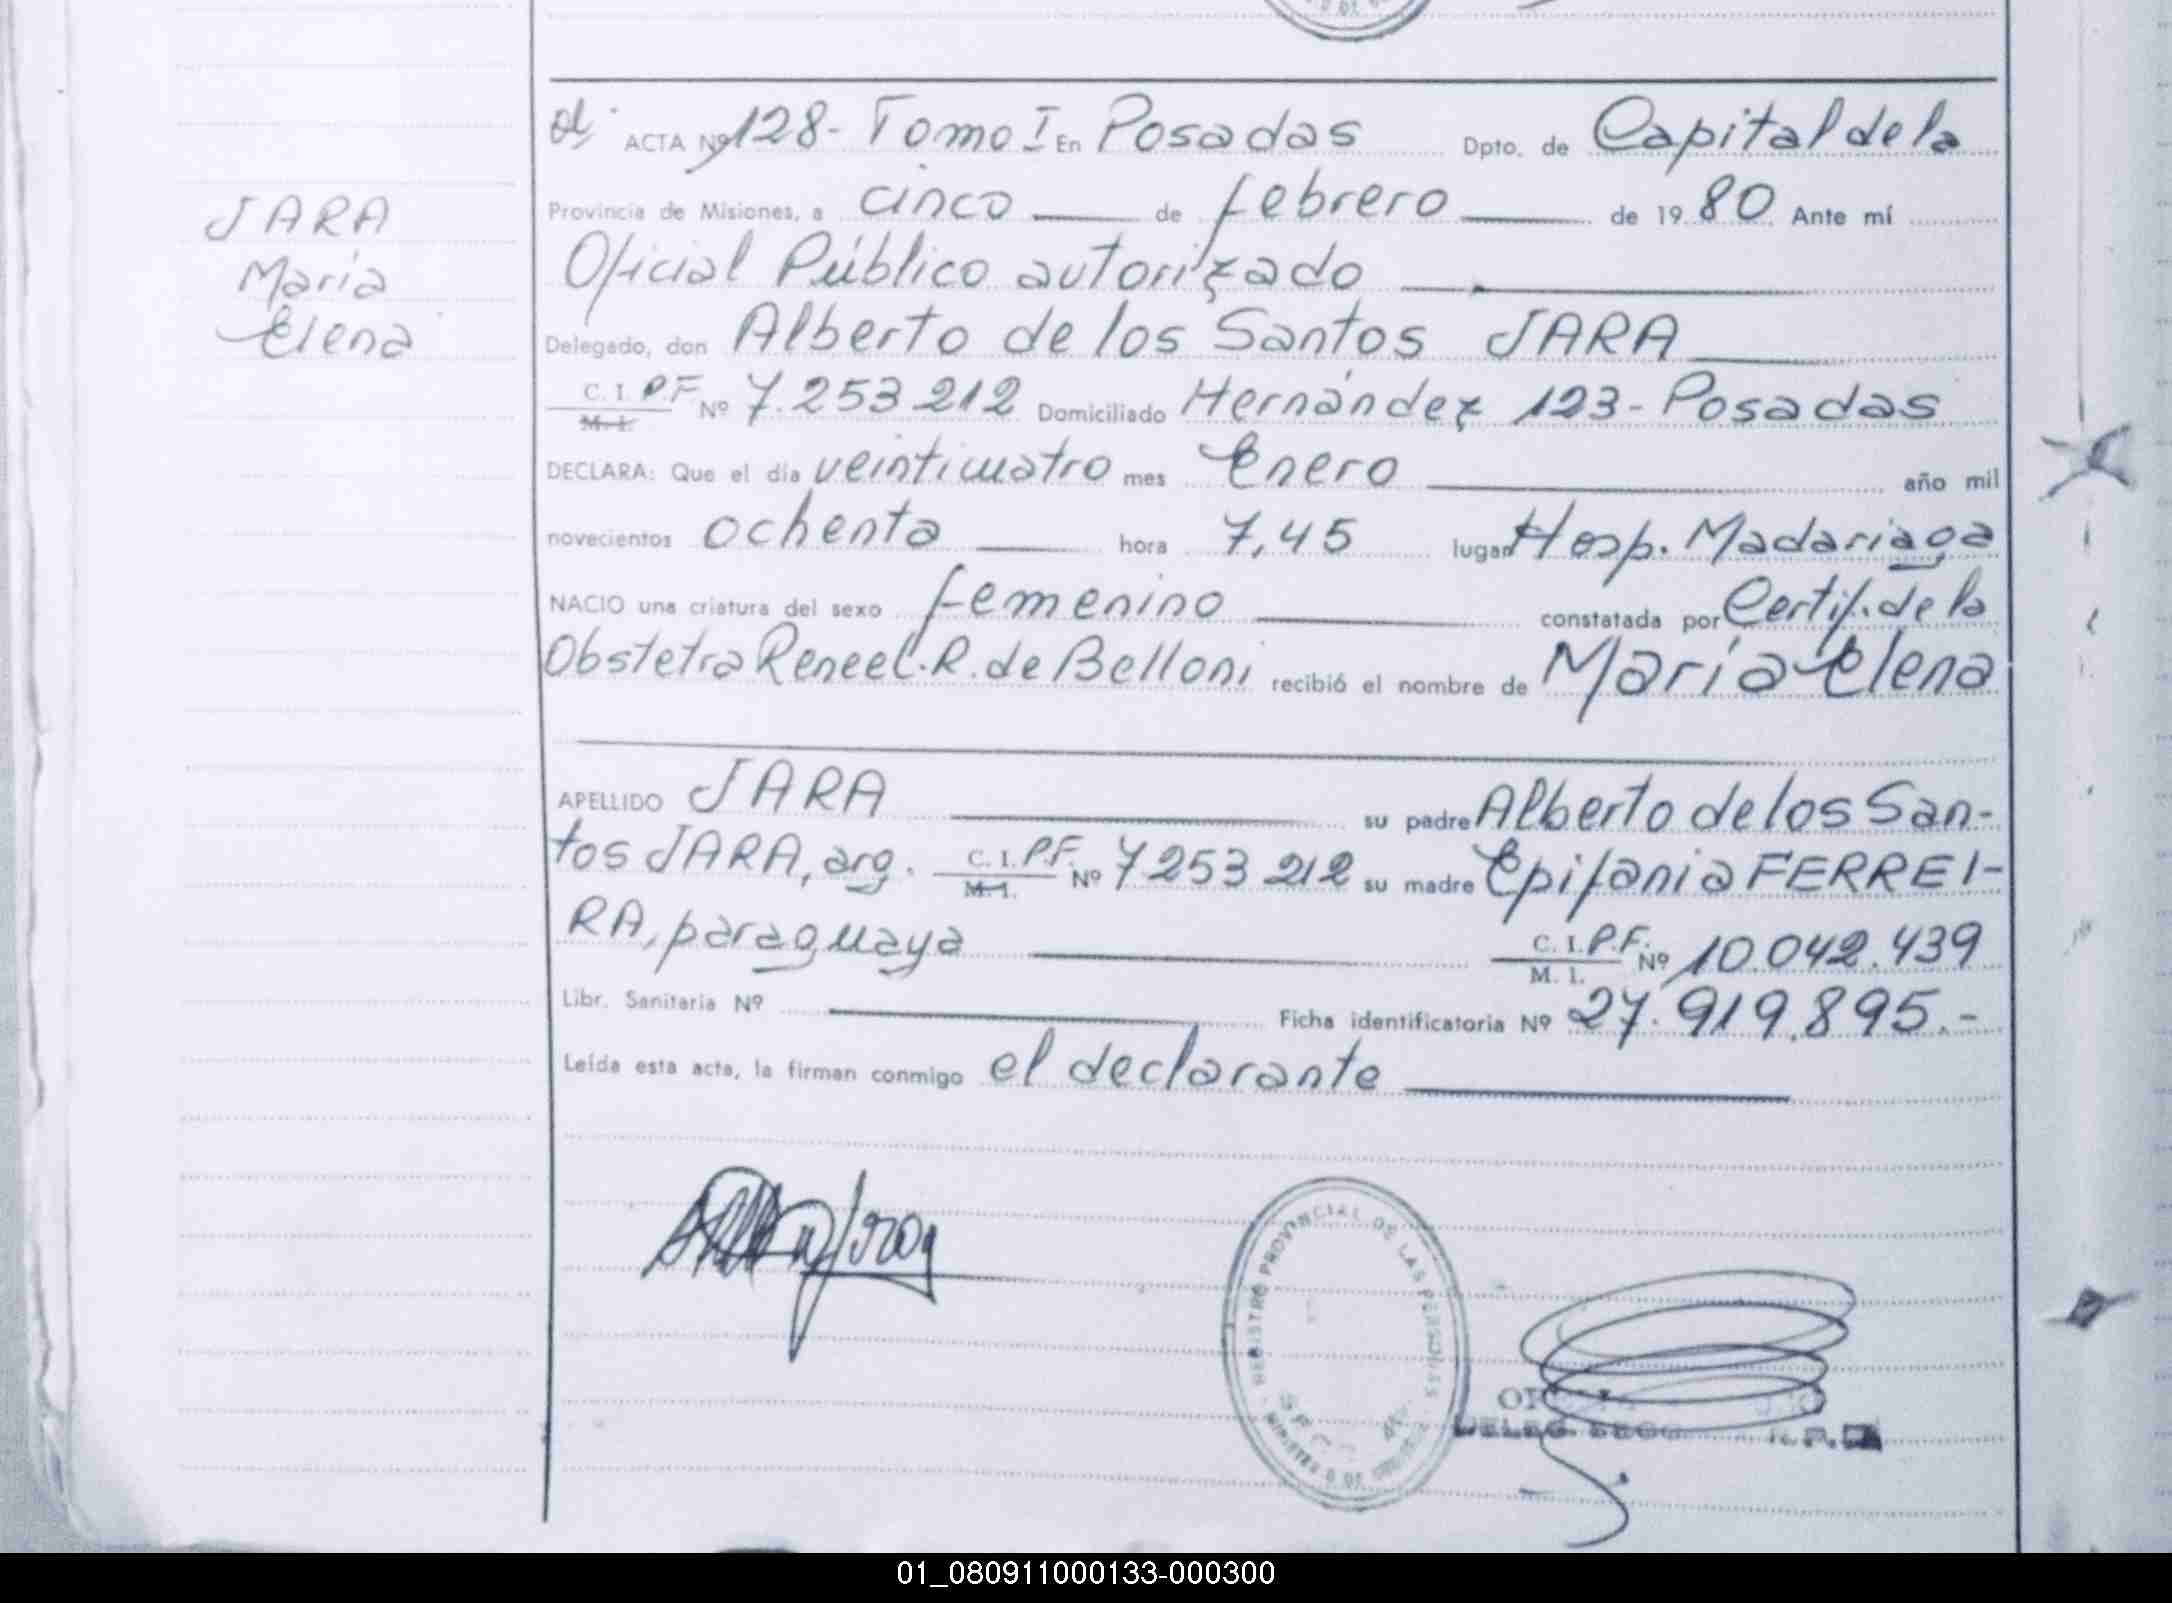 JARA
María
Elena
ACTA Nº 128- Tomo I En Posadas Dpto. de Capital de la
Provincia de Misiones, a cinco de febrero de 1980 Ante mí
Oficial Público autorizado
Delegado, don Alberto de los Santos JARA
C. I. P.F Nº 7.253 212 Domiciliado Hernández 123 - Posadas
M. I.
DECLARA: Que el día veinticuatro mes Enero año mil
novecientos ochenta hora 7,45 lugar Hosp. Madariaga
NACIO una criatura del sexo femenino constatada por Certif. de la
Obstetra Renee C. R. de Belloni recibió el nombre de María Elena
APELLIDO JARA su padre Alberto de los San-
tos JARA, arg. C. I. P.F. Nº 7253 212 su madre Epifania FERREI-
M. I.
RA, paraguaya C. I. P.F. Nº 10.042.439
M. I.
Libr. Sanitaria Nº Ficha identificatoria Nº 27.919.895.-
Leída esta acta, la firman conmigo el declarante
REGISTRO PROVINCIAL DE LAS PERSONAS
01_080911000133-000300